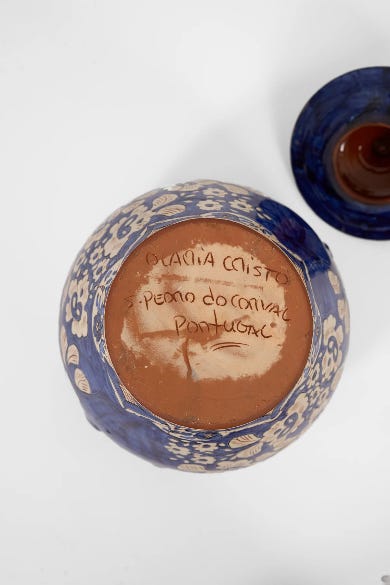 OLARIA CRISTO
S. PEDRO do CORVAL
PORTUGAL